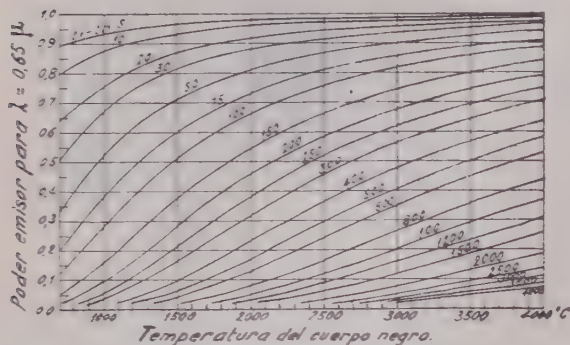 Poder emisor para λ = 0,65 μ
1,0
0,9
0,8
0,7
0,6
0,5
0,4
0,3
0,2
0,1
0,0
5
10
20
30
50
75
100
150
200
250
300
400
500
600
800
100
1200
1500
2000
2500
1000
1500
2000
2500
3000
3500
4000°C
Temperatura del cuerpo negro.